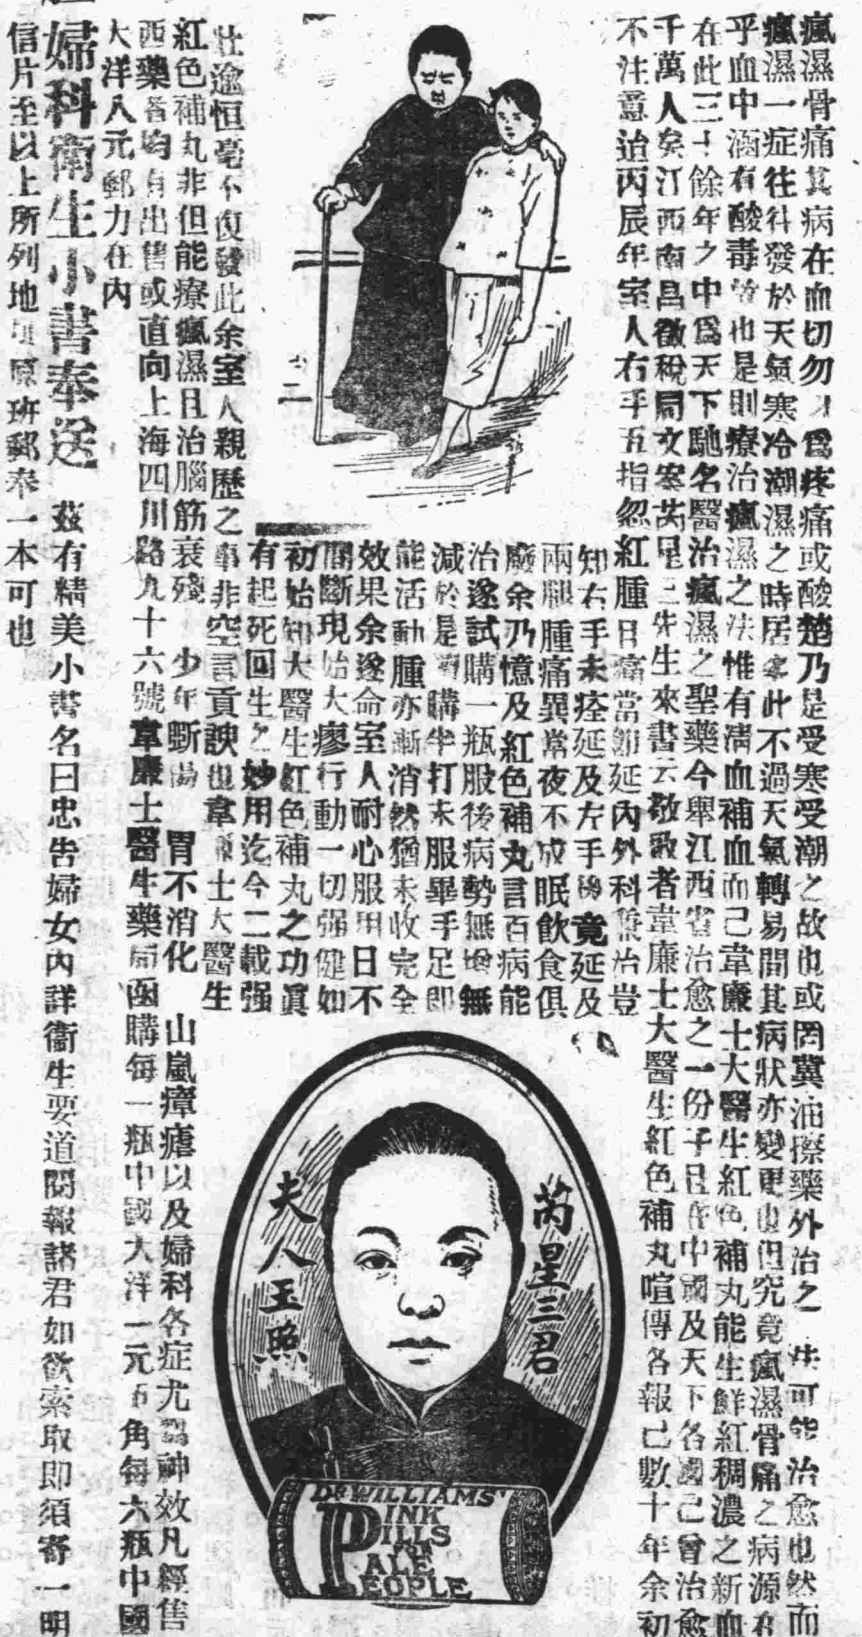 瘋濕骨痛其病在血切勿以為疼痛或酸楚乃是受寒受潮之故也或罔冀油擦藥外治之 可能治愈也然而
瘋濕一症往往發於天氣寒冷潮濕之時居家此不過天氣轉易間其病狀亦變更也但究竟瘋濕骨痛之病源在
乎血中涵有酸毒故也是則療治瘋濕之法惟有清血補血而已韋廉士大醫生紅色補丸能生鮮紅稠濃之新血
在此三十餘年之中為天下馳名醫治瘋濕之聖藥今舉江西省治愈之一份子且在中國及天下各國已曾治愈
千萬人矣江西南昌徵稅局文案芮星三先生來書云敬啟者韋廉士大醫生紅色補丸喧傳各報已數十年余初
不注意迨丙辰年室人右手五指忽紅腫日痛當即延內外科藥治豈
知右手未痊延及左手後竟延及
兩腿腫痛異常夜不成眠飲食俱
廢余乃憶及紅色補丸言百病能
治遂試購一瓶服後病勢無增無
減於是續購半打未服畢手足即
能活動腫亦漸消然猶未收完全
效果余遂命室人耐心服用日不
間斷現始大瘳行動一切強健如
初始知大醫生紅色補丸之功真
有起死回生之妙用迄今二載強
壯逾恒毫不復發此余室人親歷之事非空言貢諛也韋廉士大醫生
紅色補丸非但能療瘋濕且治腦筋衰殘 少年斷傷 胃不消化 山嵐瘴瘧以及婦科各症尤為神效凡經售
西藥者均有出售或直向上海四川路九十六號韋廉士醫生藥局函購每一瓶中國大洋一元五角每六瓶中國
大洋八元郵力在內
婦科衛生小書奉送 茲有精美小書名曰忠告婦女內詳衛生要道閱報諸君如欲索取即須寄一明
信片至以上所列地址原班郵奉一本可也
芮星三君
夫人玉照
DR WILLIAMS'
PINK
PILLS
FOR
PALE
PEOPLE